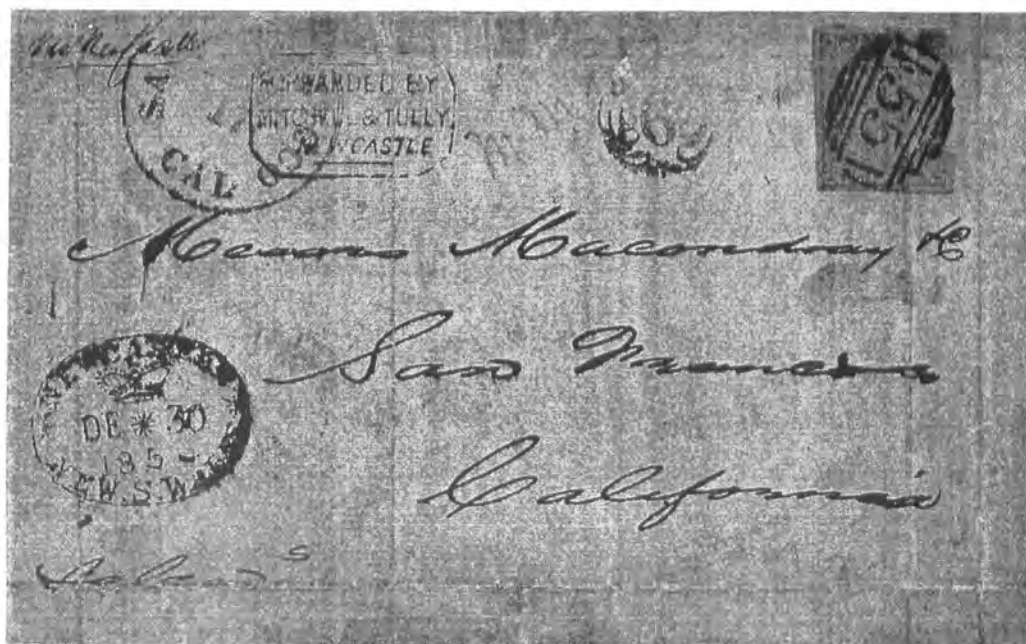 via Newcastle
FORWARDED BY
MITCHELL & TULLY
NEWCASTLE
CAL
55
Messrs Macondray & C
San Francisco
California
NEWCASTLE
DE * 30
185
N.S.W